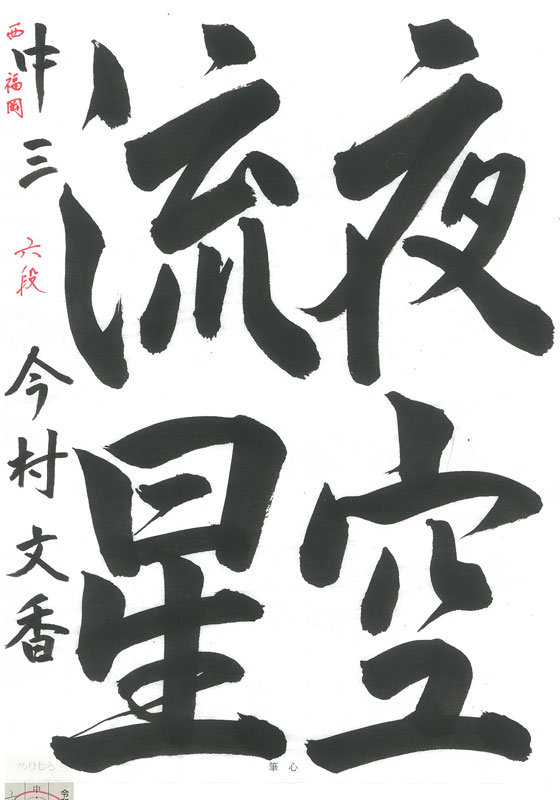 夜空
流星
中三 今村文香
西福岡
六段
心筆